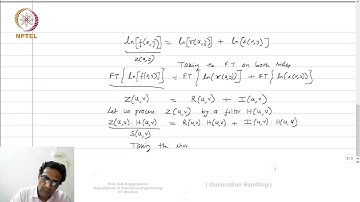 NPTEL
ln[f(x,y)] = ln[r(x,y)] + ln[i(x,y)]
z(x,y)
Taking the FT on both sides
FT{ln[f(x,y)]} = FT{ln(r(x,y))} + FT{ln(i(x,y))}
Z(u,v) = R(u,v) + I(u,v)
Let us process Z(u,v) by a filter H(u,v)
Z(u,v) H(u,v) = R(u,v) H(u,v) + I(u,v) H(u,v)
S(u,v)
Taking the inv
Prof. A.N.Rajagopalan
Department of Electrical Engineering
IIT Madras
( Illumination Handling )